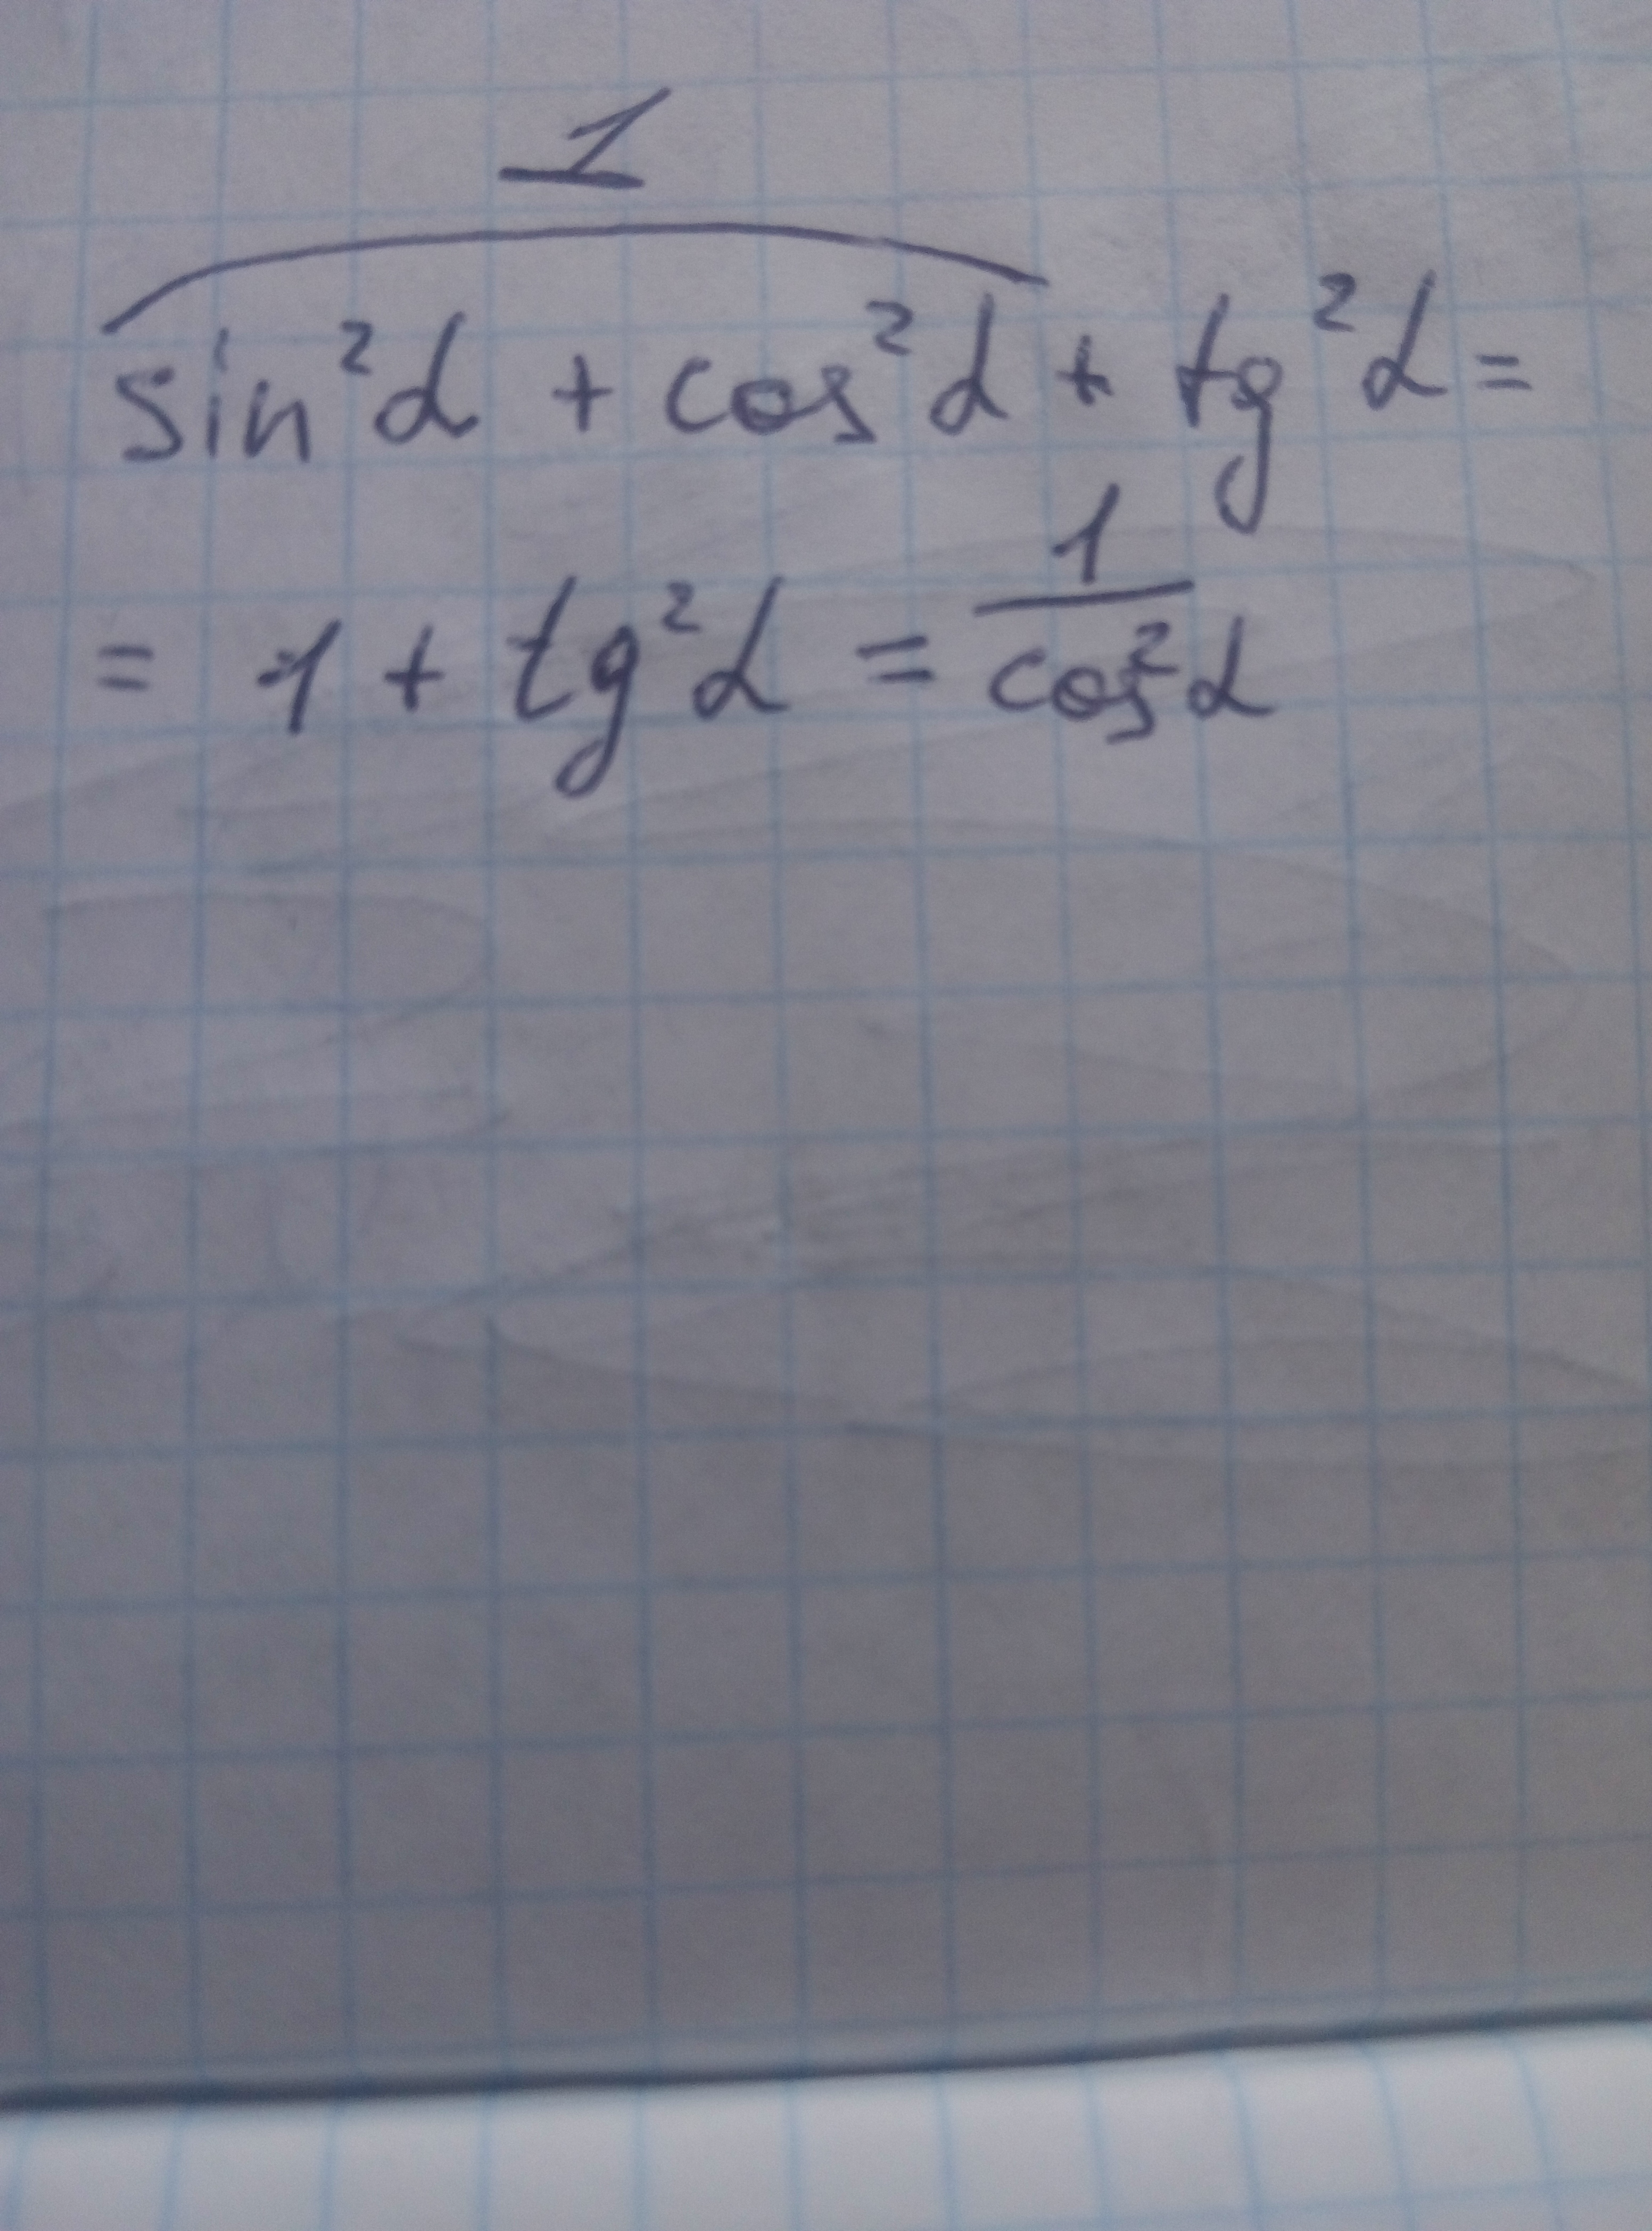 1
sin²α + cos²α + tg²α =
= 1 + tg²α = 1/cos²α